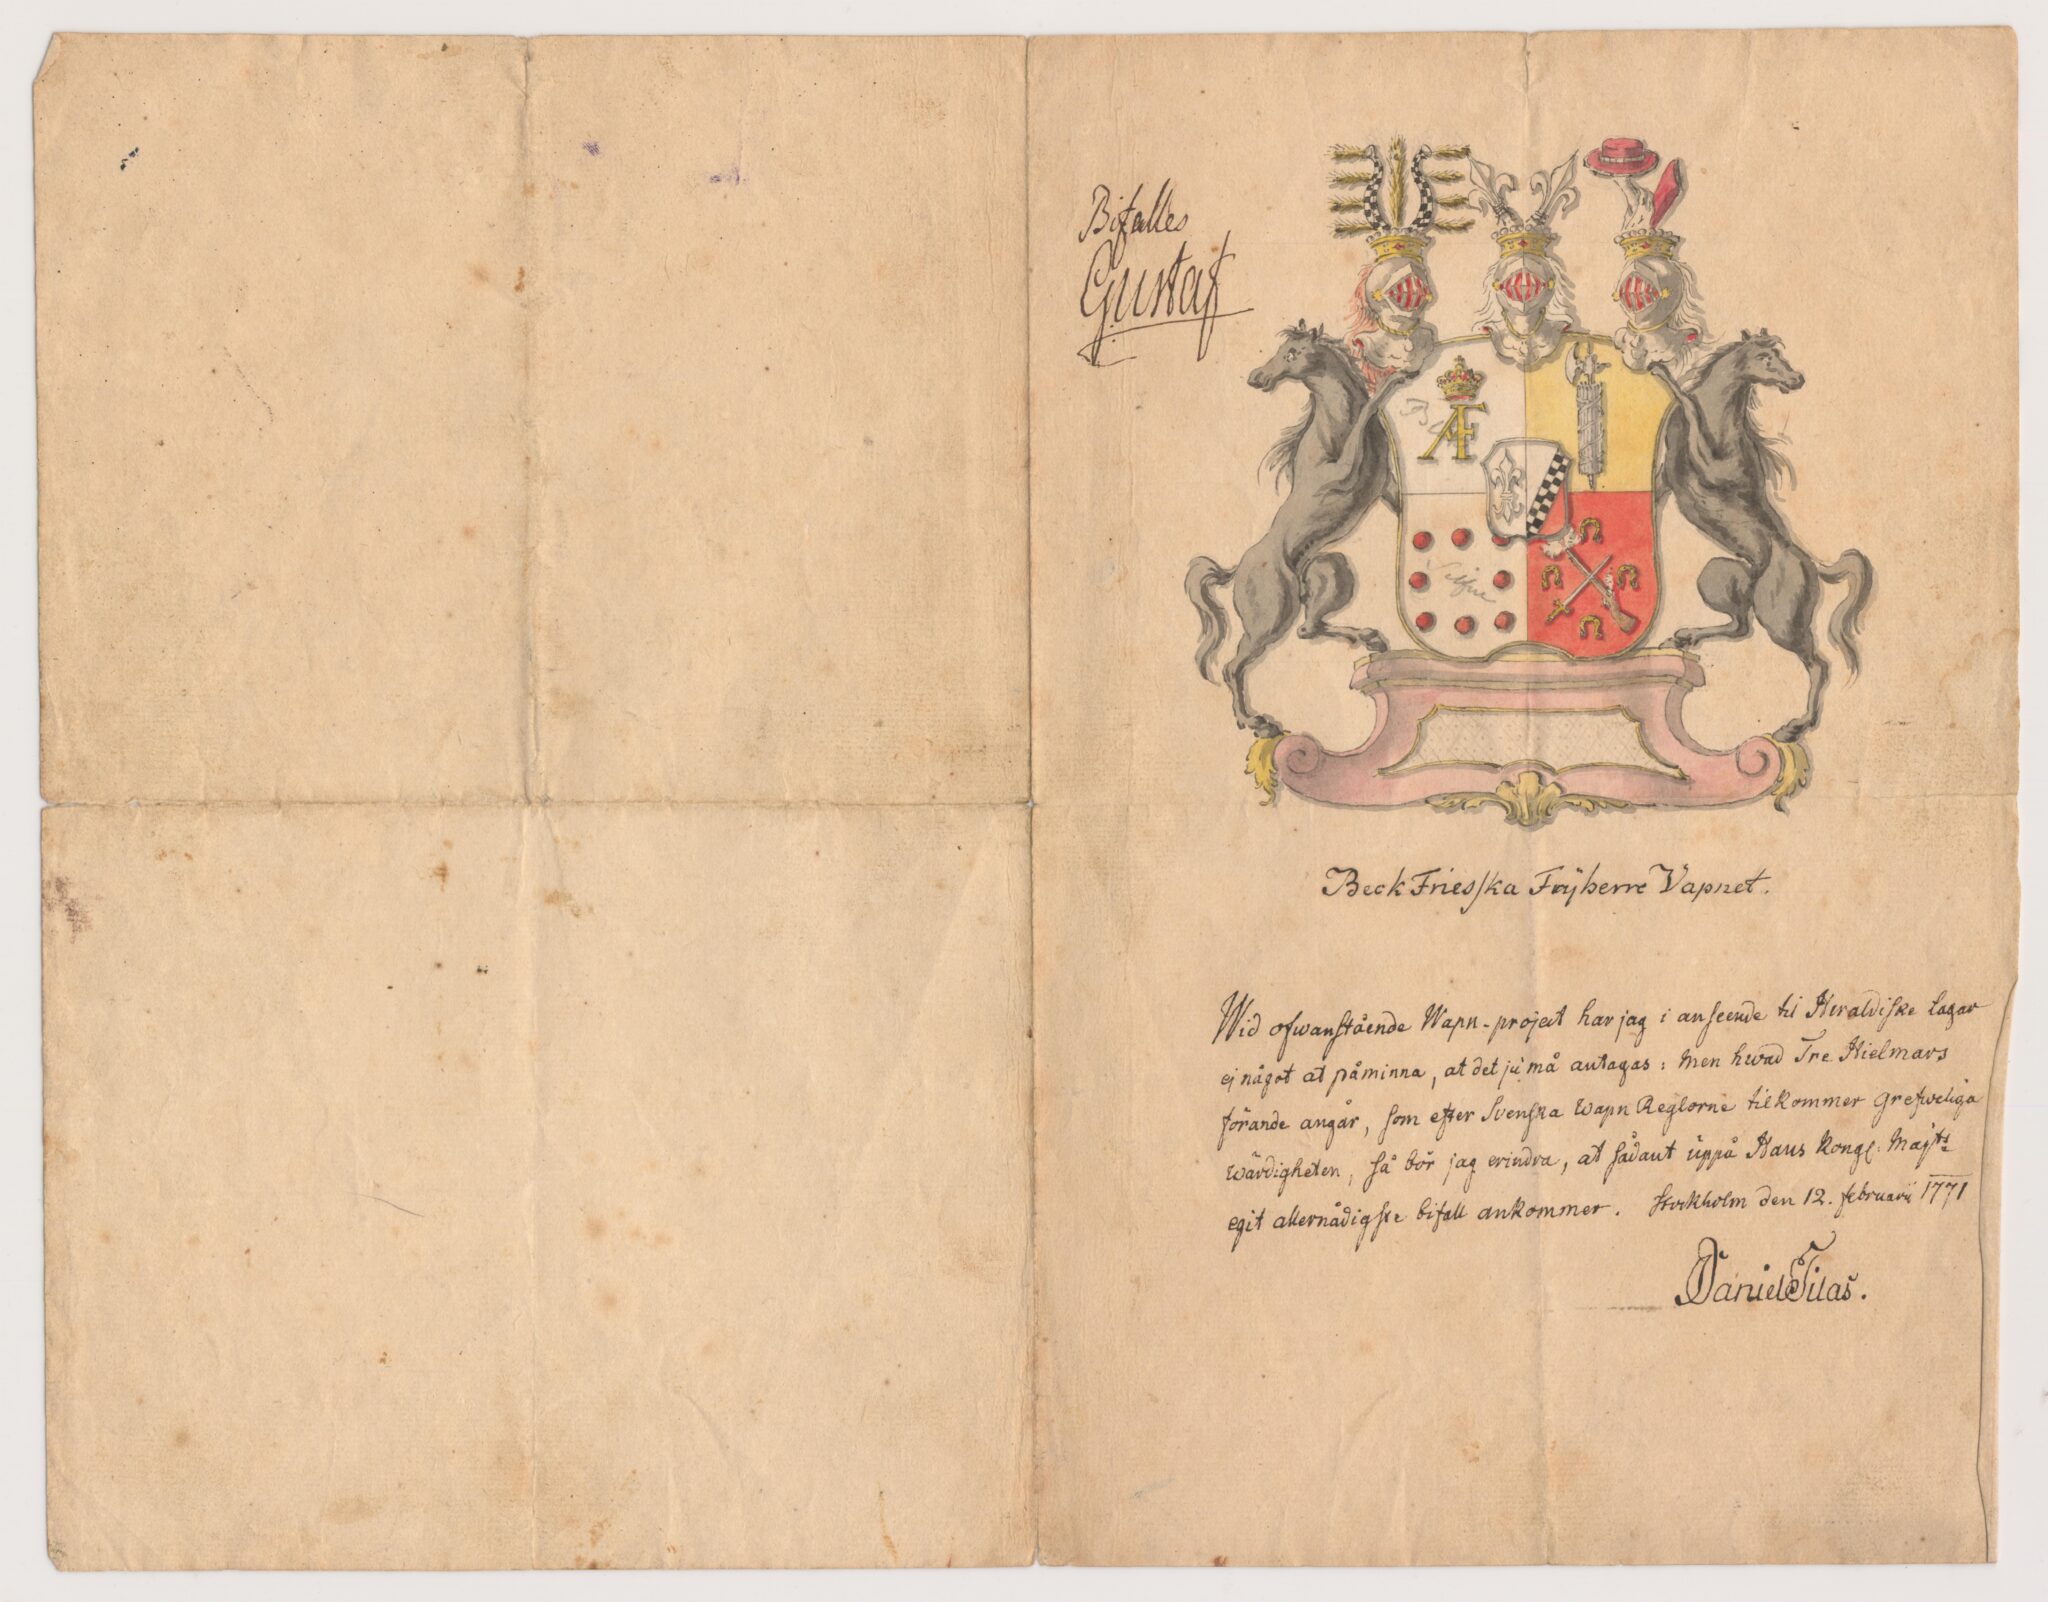 Bifalles
Gustaf
AF
Beck Friesska Frÿherre Vapnet.
Wid ofwanstående Wapn-project har jag i anseende til Heraldiske lagar
ej något at påminna, at det ju må antagas: Men hwad Tre Hielmars
förande angår, som efter Svenska Wapn Reglorne tilkommer Grefweliga
wärdigheten, så bör jag erindra, at sådant uppå Hans Kongl: Maj:ts
egit allernådigste bifall ankommer. Stockholm den 12. februarii 1771
Daniel Tilas.